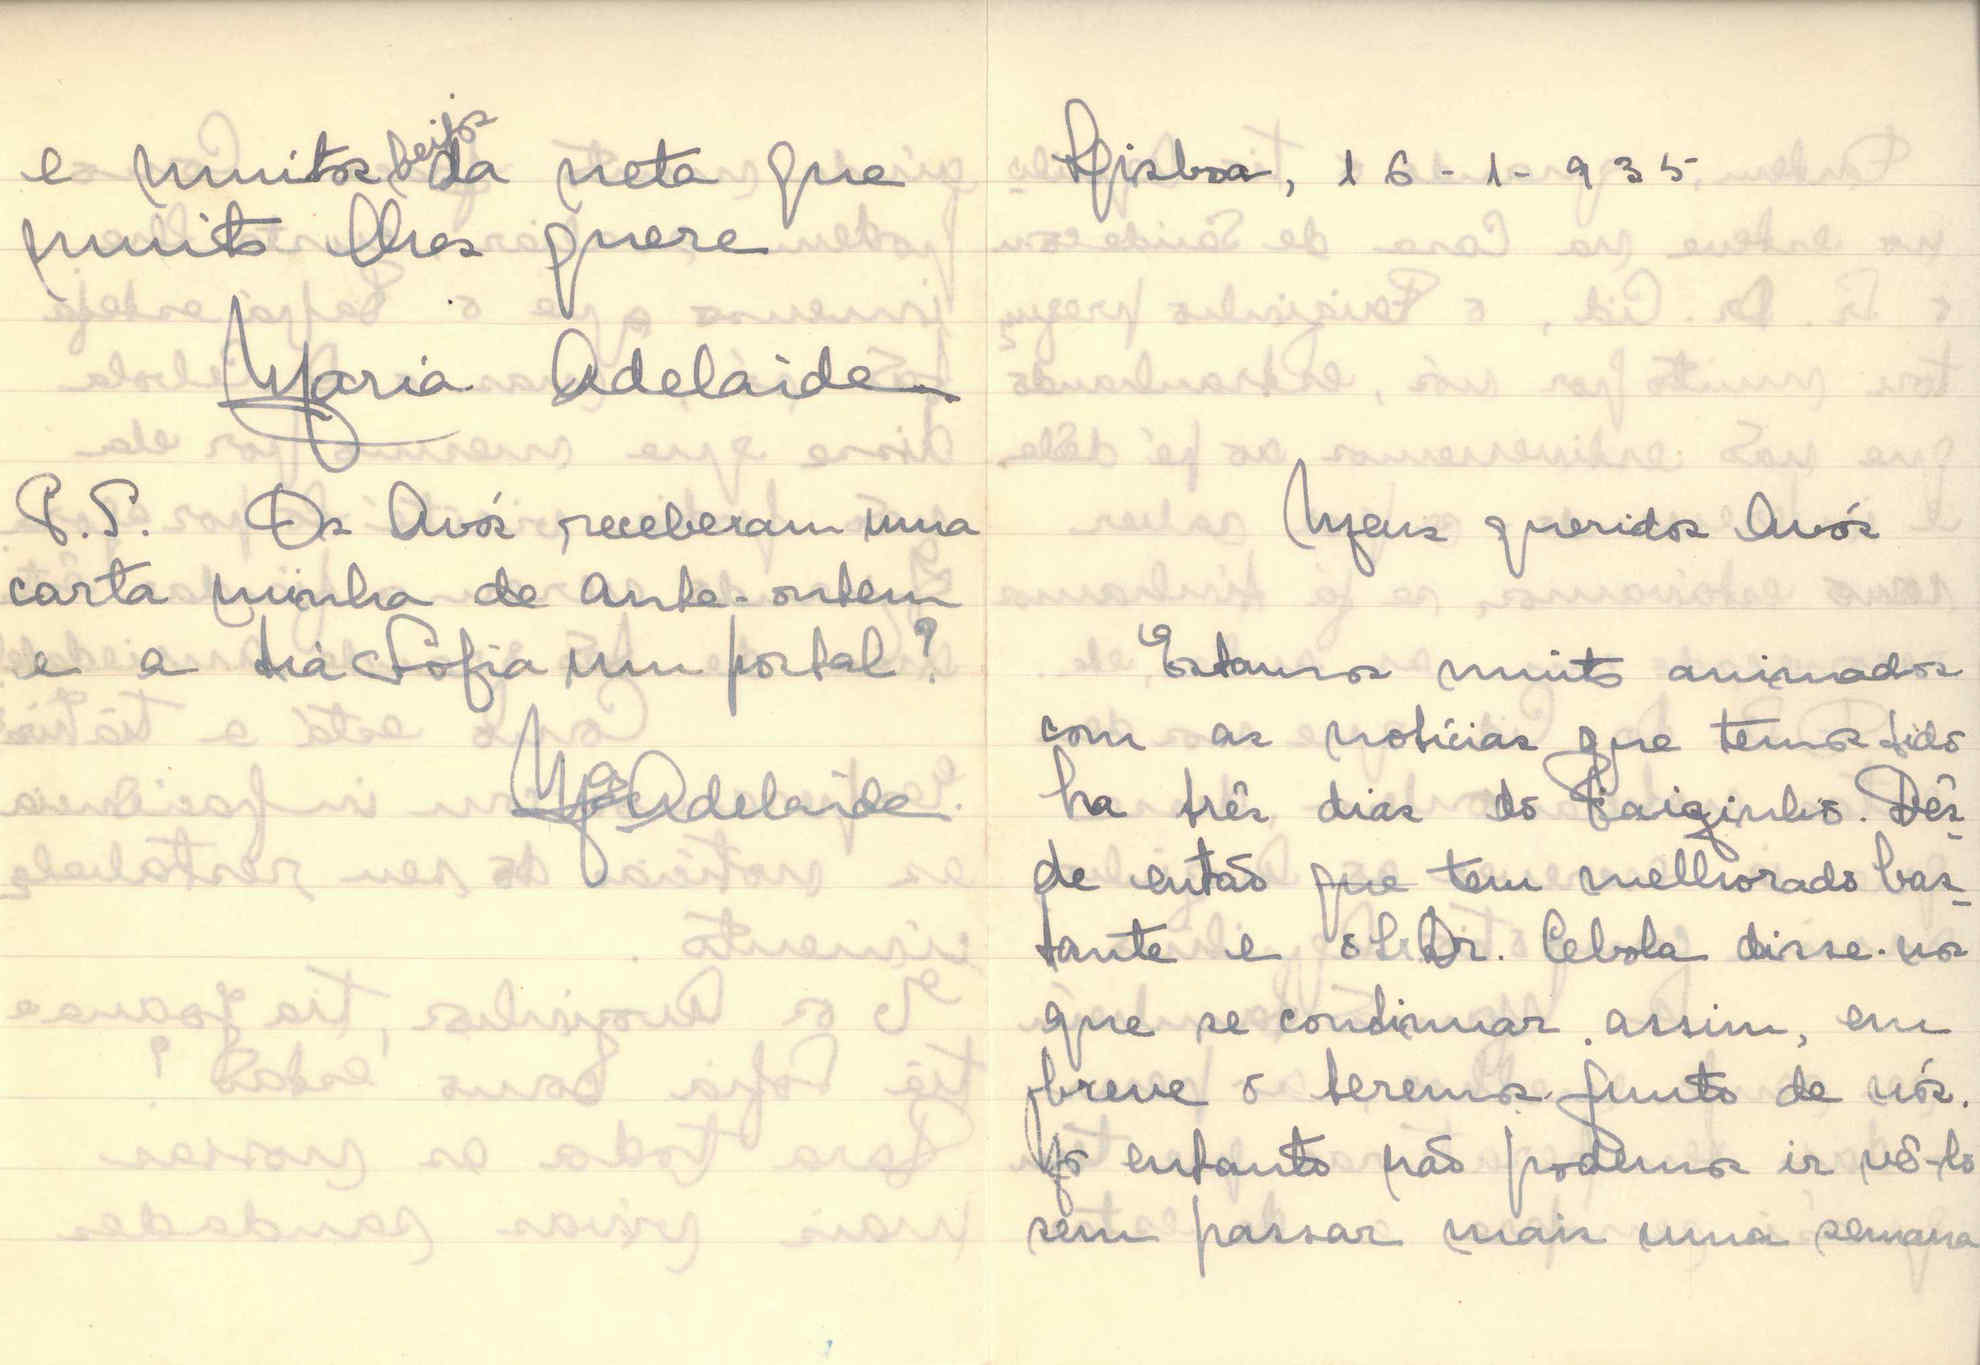 Lisboa, 16-1-935
Meus queridos Avós
Estamos muito animados
com as notícias que temos tido
ha três dias do Paizinho. Dês-
de então que tem melhorado bas-
tante e o Sr. Dr. Cebola disse-nos
que se continuar assim, em
breve o teremos junto de nós.
No entanto não podemos ir vê-lo
sem passar mais uma semana
e muitos beijos da neta que
muito lhes quere
Maria Adelaide
P.S. Os Avós receberam uma
carta minha de ante-ontem
e a tia Sofia um postal?
Mª Adelaide